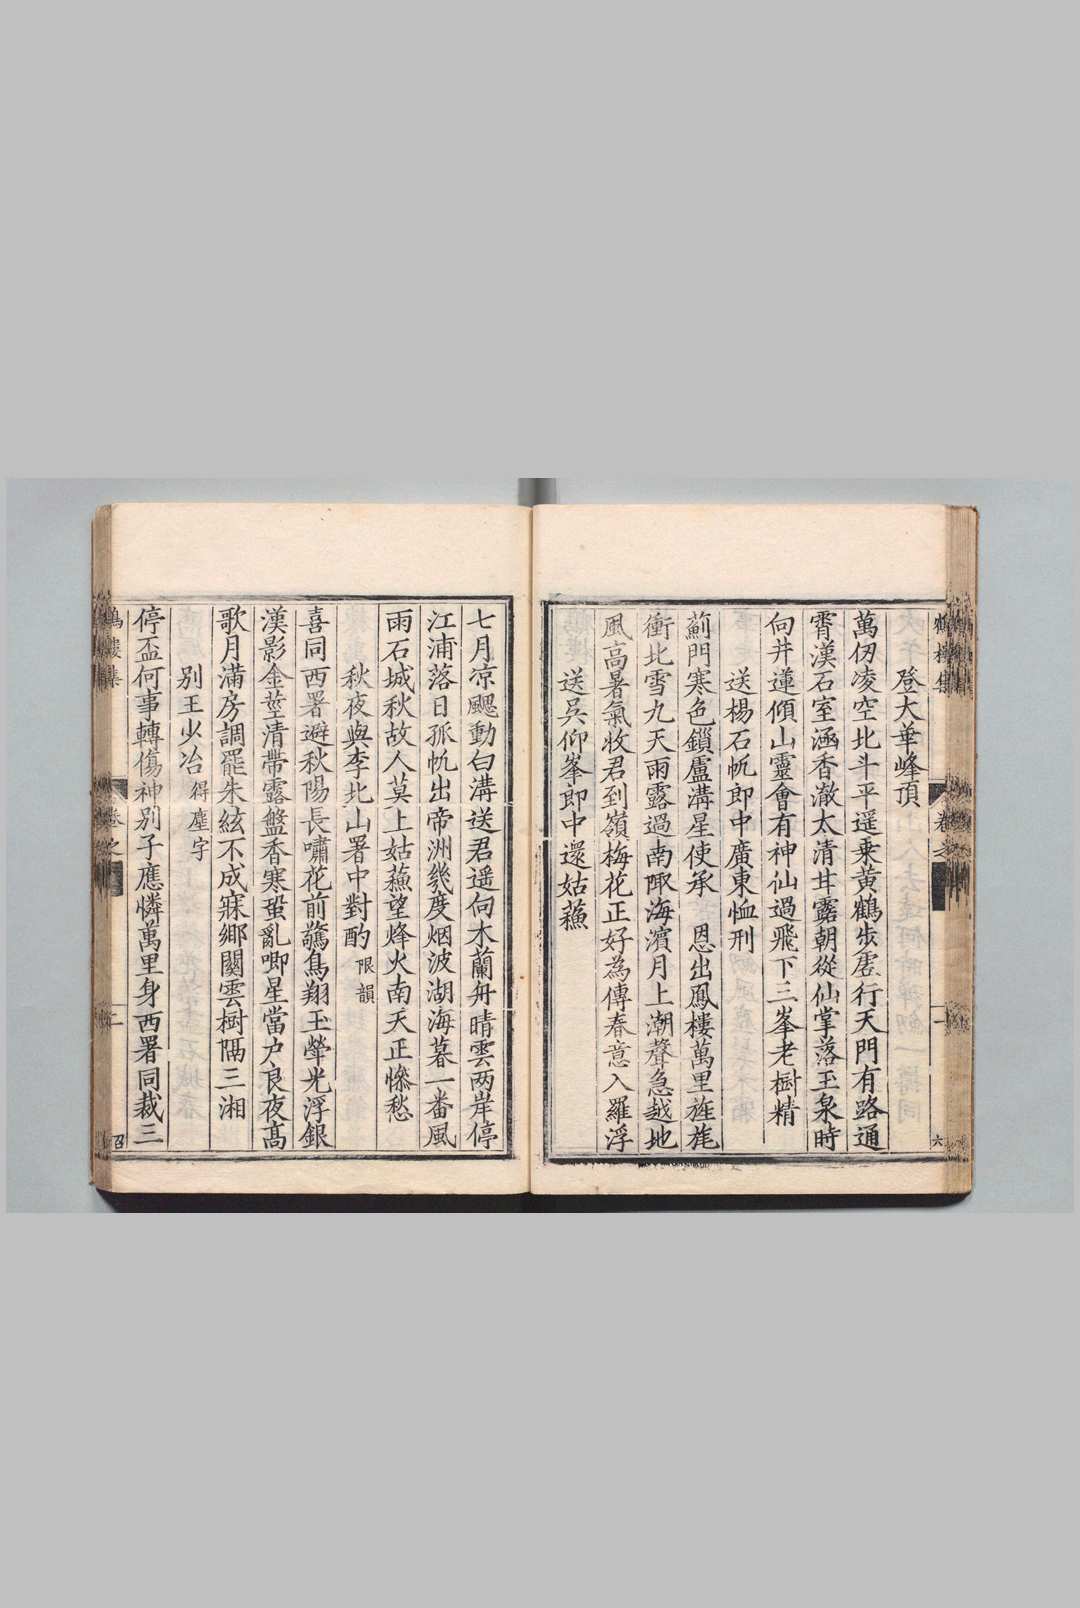 登大華峰頂
萬仞凌空北斗平遥乗黄鶴步虗行天門有路通
霄漢石室涵香澈太清甘露朝從仙掌落玉泉時
向井蓮傾山靈會有神仙過飛下三峯老樹精
送楊石帆郎中廣東恤刑
薊門寒色鎖盧溝星使承　恩出鳳樓萬里旌旄
衝北雪九天雨露過南陬海濱月上潮聲急越地
風髙暑氣收君到嶺梅花正好為傳春意入羅浮
送吳仰峯郎中還姑蘓
七月凉颸動白溝送君遥向木蘭舟晴雲两岸停
江浦落日孤帆出帝洲幾度烟波湖海暮一番風
雨石城秋故人莫上姑蘓望烽火南天正慘愁
秋夜與李北山署中對酌限韻
喜同西署避秋陽長嘯花前驚鳥翔玉犖光浮銀
漢影金莖清帶露盤香寒蛩亂唧星當户良夜髙
歌月滿房調罷朱絃不成寐鄉關雲樹隔三湘
别王少冶得塵字
停盃何事轉傷神别子應憐萬里身西署同裁三
鶴樓集
卷之
二
召
卷之
一
六